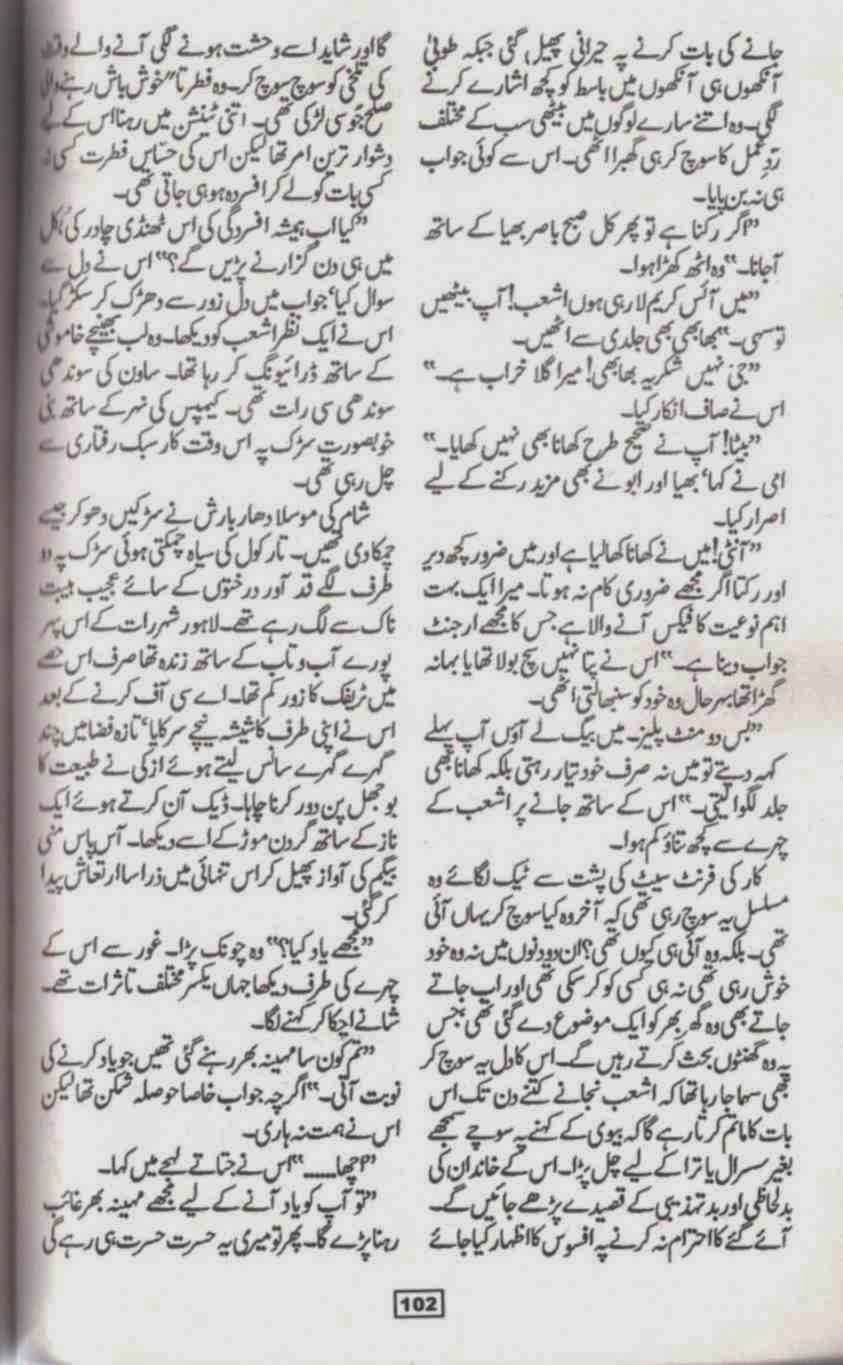 جانے کی بات کرنے پہ حیرانی پھیل گئی جبکہ طوبیٰ
آنکھوں ہی آنکھوں میں باسط کو کچھ اشارے کرنے
لگی۔ وہ اتنے سارے لوگوں میں بیٹھی سب کے مختلف
ردِ عمل کا سوچ کر ہی گھبرا اٹھی۔ اس سے کوئی جواب
ہی نہ بن پایا۔
”اگر رکنا ہے تو پھر کل صبح یاصر بھیا کے ساتھ
آجانا۔“ وہ اٹھ کھڑا ہوا۔
”میں آئس کریم لا رہی ہوں اشعب! آپ بیٹھیں
تو سہی۔“ بھابھی بھی جلدی سے اٹھیں۔
”جی نہیں شکریہ بھابھی! میرا گلا خراب ہے۔“
اس نے صاف انکار کیا۔
”بیٹا! آپ نے صحیح طرح کھانا بھی نہیں کھایا۔“
امی نے کہا‘ بھیا اور ابو نے بھی مزید رکنے کے لیے
اصرار کیا۔
”آنٹی! میں نے کھانا کھا لیا ہے اور میں ضرور کچھ دیر
اور رکتا اگر مجھے ضروری کام نہ ہوتا۔ میرا ایک بہت
اہم نوعیت کا فیکس آنے والا ہے جس کا مجھے ارجنٹ
جواب دینا ہے۔“ اس نے پتا نہیں سچ بولا تھا یا بہانہ
گھڑا تھا بہرحال وہ خود کو سنبھالتی اٹھی۔
”بس دو منٹ پلیز۔ میں بیگ لے آؤں آپ پہلے
کہہ دیتے تو میں نہ صرف خود تیار رہتی بلکہ کھانا بھی
جلد لگوا لیتی۔“ اس کے ساتھ جانے پر اشعب کے
چہرے سے کچھ تناؤ کم ہوا۔
کار کی فرنٹ سیٹ کی پشت سے ٹیک لگائے وہ
مسلسل یہ سوچ رہی تھی کہ آخر وہ کیا سوچ کر یہاں آئی
تھی۔ بلکہ وہ آئی ہی کیوں تھی؟ ان دو دنوں میں نہ وہ خود
خوش رہی تھی نہ ہی کسی کو کر سکی تھی اور اب جاتے
جاتے بھی وہ گھر بھر کو ایک موضوع دے گئی تھی‘ جس
پہ وہ گھنٹوں بحث کرتے رہیں گے۔ اس کا دل یہ سوچ کر
بھی سہما جا رہا تھا کہ اشعب نجانے کتنے دن تک اس
بات کا ماتم کرتا رہے گا کہ بیوی کے کہنے پہ سوچے سمجھے
بغیر سسرال یاترا کے لیے چل پڑا۔ اس کے خاندان کی
بدلحاظی اور بدتہذیبی کے قصیدے پڑھے جائیں گے۔
آئے گئے کا احترام نہ کرنے پہ افسوس کا اظہار کیا جائے
گا اور شاید اسے وحشت ہونے لگی آنے والے وقت
کی تلخی کو سوچ سوچ کر۔ وہ فطرتاً خوش باش رہنے والی
صلح جو سی لڑکی تھی۔ اتنی ٹنشن میں رہنا اس کے لیے
دشوار ترین امر تھا لیکن اس کی حساس فطرت کسی نہ
کسی بات کو لے کر افسردہ ہو ہی جاتی تھی۔
”کیا اب ہمیشہ افسردگی کی اس ٹھنڈی چادر کی بُکل
میں ہی دن گزارنے پڑیں گے؟“ اس نے دل سے
سوال کیا‘ جواب میں دل زور سے دھڑک کر سکڑ گیا۔
اس نے ایک نظر اشعب کو دیکھا۔ وہ لب بھینچے خاموشی
کے ساتھ ڈرائیونگ کر رہا تھا۔ ساون کی سوندھی
سوندھی سی رات تھی۔ کیمپس کی نہر کے ساتھ بنی
خوبصورت سڑک پہ اس وقت کار سبک رفتاری سے
چل رہی تھی۔
شام کی موسلا دھار بارش نے سڑکیں دھو کر جیسے
چمکا دی تھیں۔ تارکول کی سیاہ چمکتی ہوئی سڑک پہ دو
طرف لگے قد آور درختوں کے سائے عجیب ہیبت
ناک سے لگ رہے تھے۔ لاہور شہر رات کے اس پہر
پورے آب و تاب کے ساتھ زندہ تھا صرف اس حصے
میں ٹریفک کا زور کم تھا۔ اے سی آف کرنے کے بعد
اس نے اپنی طرف کا شیشہ نیچے سرکایا‘ تازہ فضا میں چند
گہرے گہرے سانس لیتے ہوئے ازکی نے طبیعت کا
بوجھل پن دور کرنا چاہا۔ ڈیک آن کرتے ہوئے ایک
ناز کے ساتھ گردن موڑ کے اسے دیکھا۔ آس پاس منی
بیگم کی آواز پھیل کر اس تنہائی میں ذرا سا ارتعاش پیدا
کر گئی۔
”مجھے یاد کیا؟“ وہ چونک پڑا۔ غور سے اس کے
چہرے کی طرف دیکھا جہاں یکسر مختلف تاثرات تھے۔
شانے اچکا کر کہنے لگا۔
”تم کون سا مہینہ بھر رہنے گئی تھیں جو یاد کرنے کی
نوبت آتی۔“ اگرچہ جواب خاصا حوصلہ شکن تھا لیکن
اس نے ہمت نہ ہاری۔
”اچھا......“ اس نے جتاتے لہجے میں کہا۔
”تو آپ کو یاد آنے کے لیے مجھے مہینہ بھر غائب
رہنا پڑے گا۔ پھر تو میری یہ حسرت حسرت ہی رہے گی
102